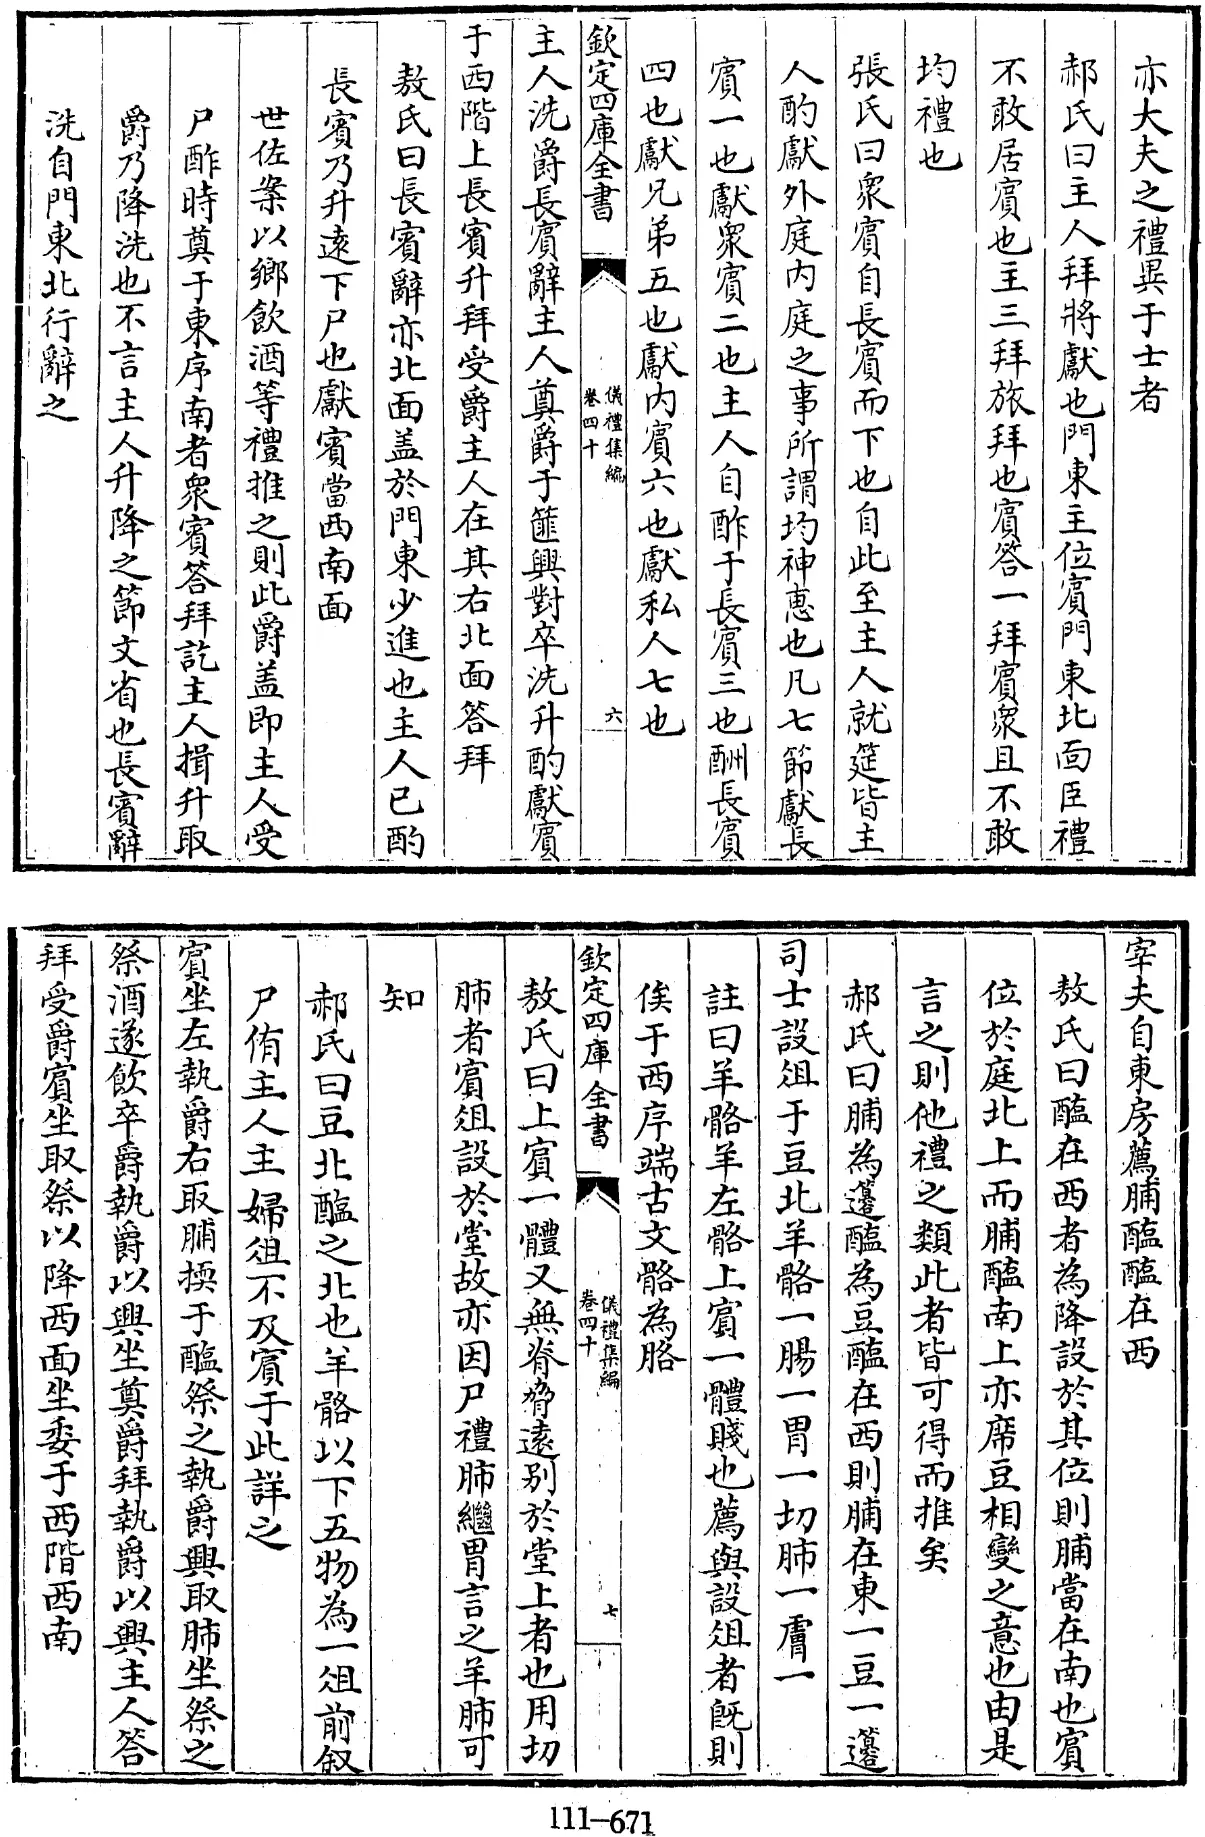 亦大夫之禮異于士者
郝氏曰主人拜將獻也門東主位賓門東北面臣禮
不敢居賓也主三拜旅拜也賓答一拜賓衆且不敢
均禮也
張氏曰衆賓自長賓而下也自此至主人就筵皆主
人酌獻外庭内庭之事所謂均神惠也凡七節獻長
賓一也獻衆賓二也主人自酢于長賓三也酬長賓
四也獻兄弟五也獻内賓六也獻私人七也
欽定四庫全書
儀禮集編
卷四十
六
主人洗爵長賓辭主人奠爵于篚興對卒洗升酌獻賓
于西階上長賓升拜受爵主人在其右北面答拜
敖氏曰長賓辭亦北面盖於門東少進也主人已酌
長賓乃升遠下尸也獻賓當西南面
世佐案以鄉飲酒等禮推之則此爵盖即主人受
尸酢時奠于東序南者衆賓答拜訖主人揖升取
爵乃降洗也不言主人升降之節文省也長賓辭
洗自門東北行辭之
宰夫自東房薦脯醢醢在西
敖氏曰醢在西者為降設於其位則脯當在南也賓
位於庭北上而脯醢南上亦席豆相變之意也由是
言之則他禮之類此者皆可得而推矣
郝氏曰脯為籩醢為豆醢在西則脯在東一豆一籩
司士設俎于豆北羊骼一腸一胃一切肺一膚一
註曰羊骼羊左骼上賓一體賤也薦與設俎者旣則
俟于西序端古文骼為胳
欽定四庫全書
儀禮集編
卷四十
七
敖氏曰上賓一體又無脊脅遠别於堂上者也用切
肺者賓俎設於堂故亦因尸禮肺繼胃言之羊肺可
知
郝氏曰豆北醢之北也羊骼以下五物為一俎前叙
尸侑主人主婦俎不及賓于此詳之
賓坐左執爵右取脯擩于醢祭之執爵興取肺坐祭之
祭酒遂飲卒爵執爵以興坐奠爵拜執爵以興主人答
拜受爵賓坐取祭以降西面坐委于西階西南
111-671